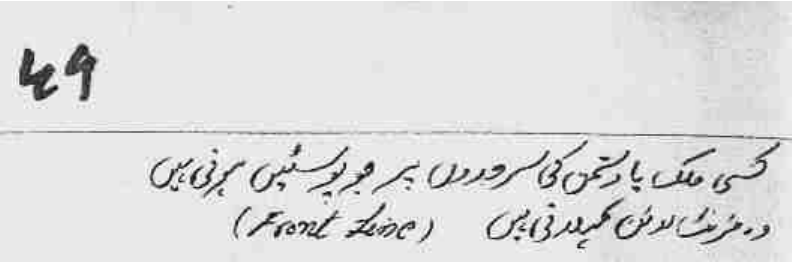 49
کسی ملک یا دشمن کی سرحدوں پر جو پوسٹیں ہوتی ہیں
وہ فرنٹ لائن کہلاتی ہیں (Front Line)